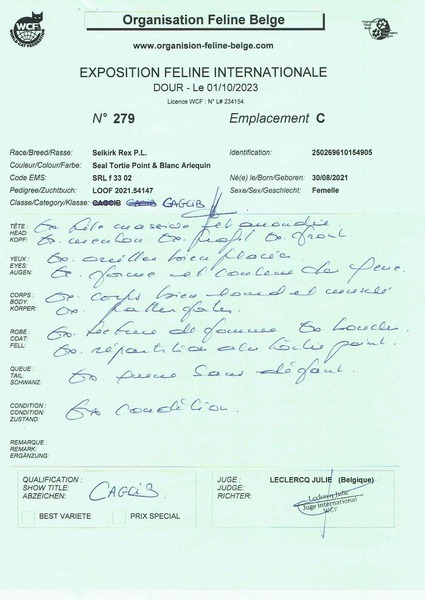 Organisation Feline Belge
WCF
WORLD CAT FEDERATION
www.organision-feline-belge.com
EXPOSITION FELINE INTERNATIONALE
DOUR - Le 01/10/2023
Licence WCF : N° L# 234154
N° 279 Emplacement C
Race/Breed/Rasse: Selkirk Rex P.L. Identification: 250269610154905
Couleur/Colour/Farbe: Seal Tortie Point & Blanc Arlequin
Code EMS: SRL f 33 02 Né(e) le/Born/Geboren: 30/08/2021
Pedigree/Zuchtbuch: LOOF 2021.54147 Sexe/Sex/Geschlecht: Femelle
Classe/Category/Klasse: CAGCIB CACIB CAGCIB
TÊTE : Ex. tête massive et arrondie
HEAD:
KOPF: Ex. menton Ex. profil Ex. front.
YEUX : Ex. oreilles bien placées
EYES:
AUGEN: Ex. forme et couleur des yeux.
CORPS : Ex. corps bien lourd et musclé
BODY:
KÖRPER: Ex. pattes
ROBE : Ex. texture de fourrure Ex. boucles.
COAT:
FELL: Ex. répartition du tortie point.
QUEUE : Ex. queue sans défaut.
TAIL:
SCHWANZ:
CONDITION : Ex condition.
CONDITION:
ZUSTAND:
REMARQUE :
REMARK:
ERGÄNZUNG:
QUALIFICATION :
SHOW TITLE:
ABZEICHEN: CAGCIB.
BEST VARIETE PRIX SPECIAL
JUGE : LECLERCQ JULIE (Belgique)
JUDGE:
RICHTER:
Leclercq Julie
Juge International
WCF